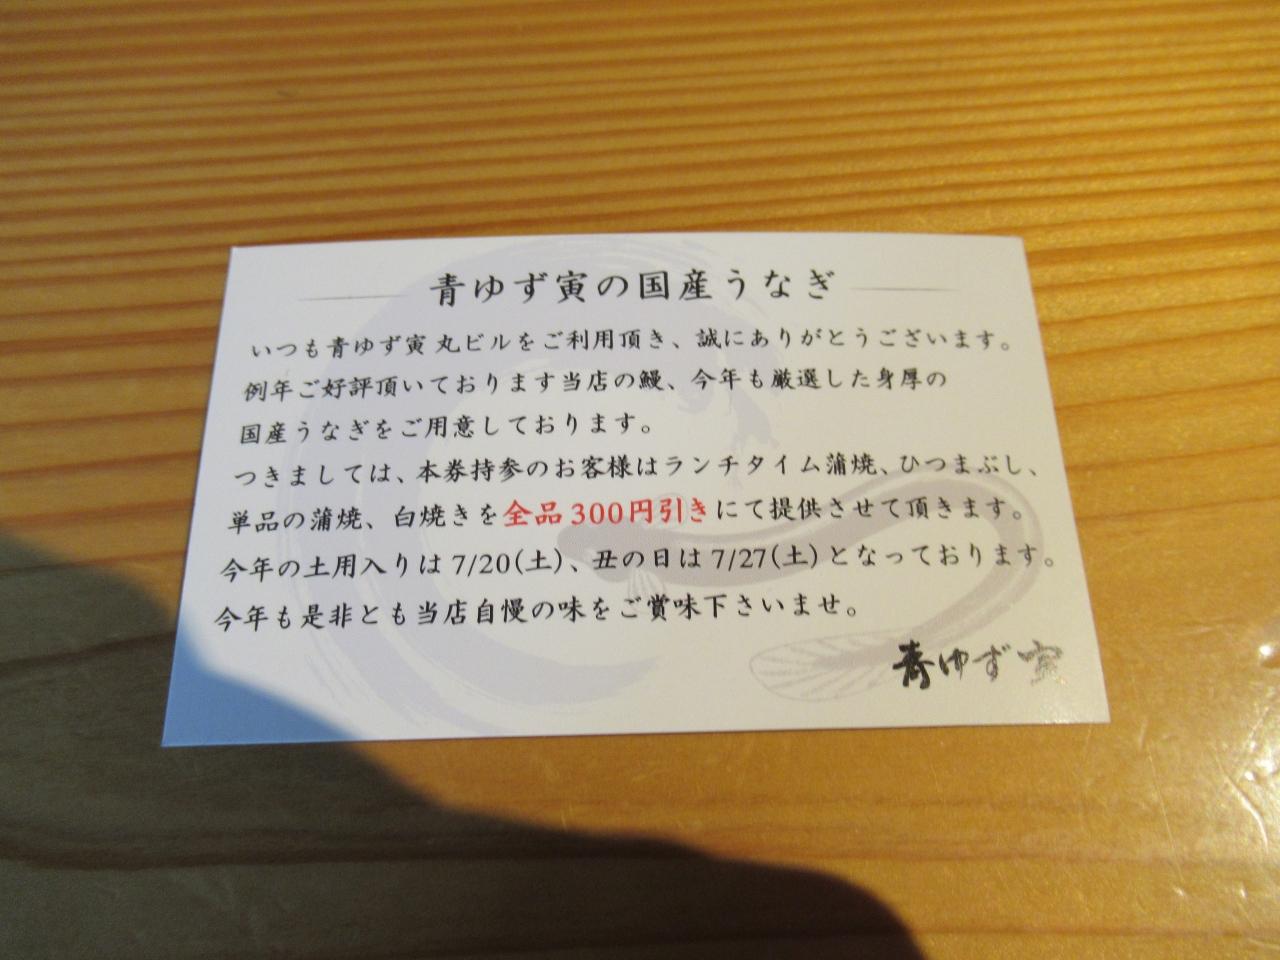 青ゆず寅の国産うなぎ
いつも青ゆず寅 丸ビルをご利用頂き、誠にありがとうございます。
例年ご好評頂いております当店の鰻、今年も厳選した身厚の
国産うなぎをご用意しております。
つきましては、本券持参のお客様はランチタイム蒲焼、ひつまぶし、
単品の蒲焼、白焼きを全品300円引きにて提供させて頂きます。
今年の土用入りは7/20(土)、丑の日は7/27(土)となっております。
今年も是非とも当店自慢の味をご賞味下さいませ。
青ゆず寅